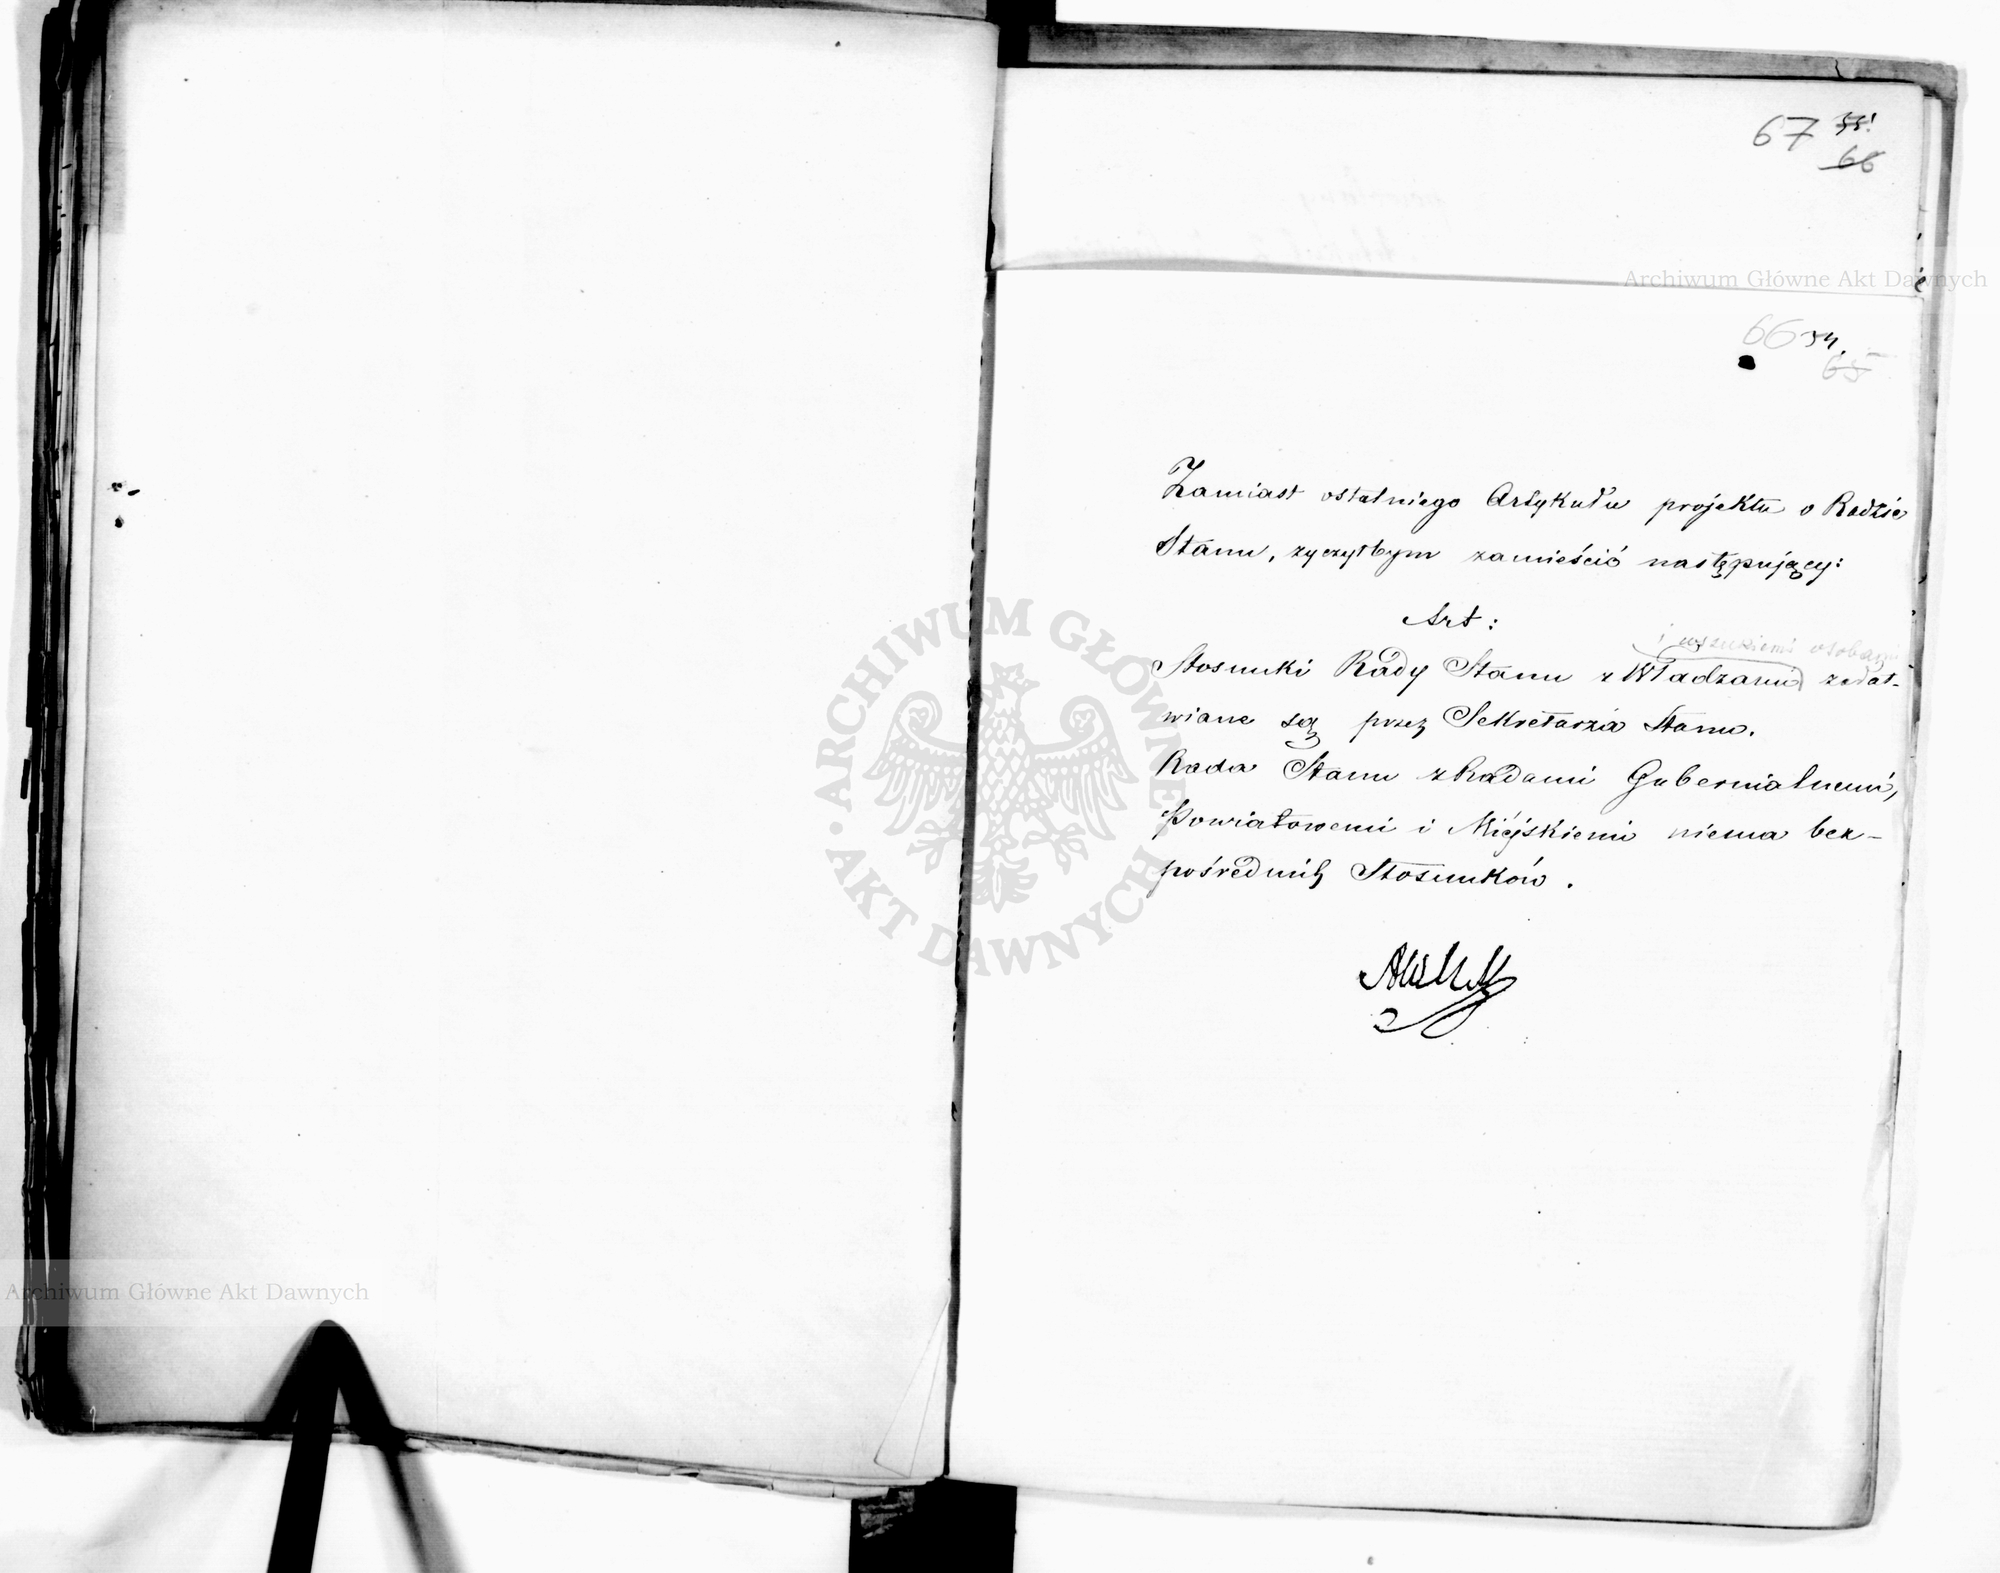 67 55.
66
Archiwum Główne Akt Dawnych
66 54.
65
Zamiast ostatniego Artykułu projektu o Radzie
Stanu, życzyłbym zamieścić następujący:
Art:
i wszelkiemi osobami
Stosunki Rady Stanu z Władzami załat-
wiane są przez Sekretarza Stanu.
Rada Stanu z Radami Gubernialnemi,
Powiatowemi i Miejskiemi niema bez-
pośrednich Stosunków.
ARCHIWUM GŁÓWNE
AKT DAWNYCH
Archiwum Główne Akt Dawnych